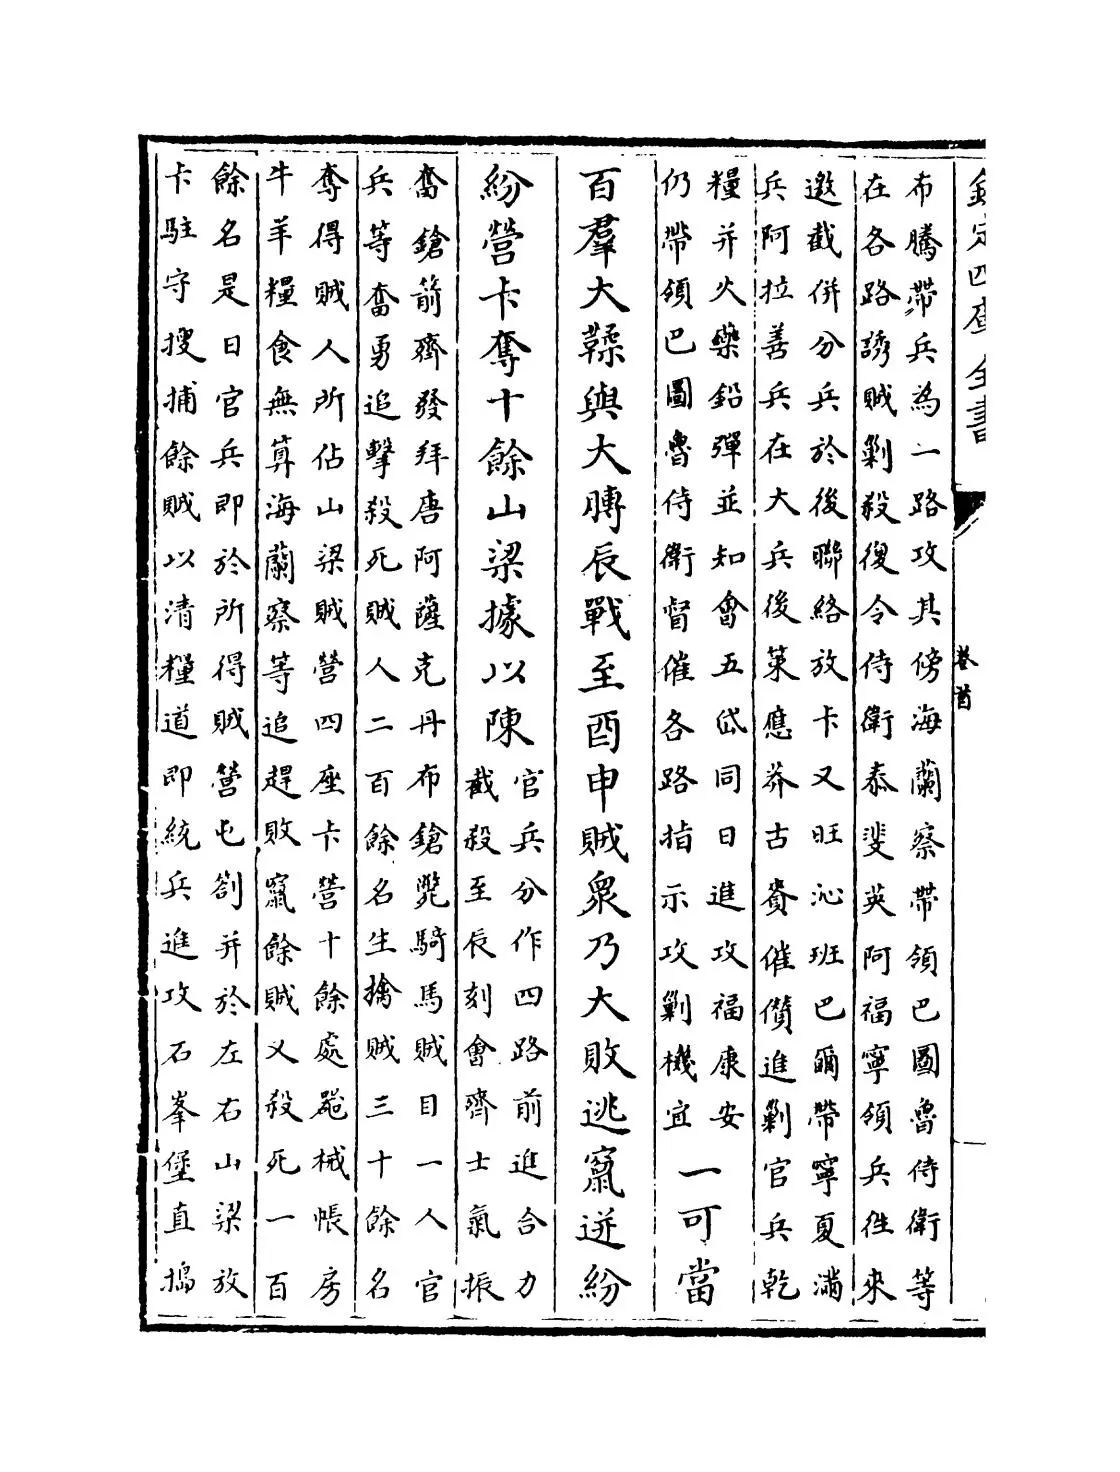 欽定四庫全書
卷首
布騰帶兵為一路攻其傍海蘭察帶領巴圖魯侍衛等
在各路誘賊剿殺復令侍衛泰斐英阿福寧領兵往來
邀截併分兵於後聯絡放卡又旺沁班巴爾帶寧夏滿
兵阿拉善兵在大兵後策應莽古賚催儹進剿官兵乾
糧并火藥鉛彈並知會五岱同日進攻福康安
仍帶領巴圖魯侍衛督催各路指示攻剿機宜
一可當
百羣大鞣與大膊辰戰至酉申賊衆乃大敗逃竄迸紛
紛營卡奪十餘山梁據以陳
官兵分作四路前進合力
截殺至辰刻會齊士氣振
奮鎗箭齊發拜唐阿薩克丹布鎗斃騎馬賊目一人官
兵等奮勇追擊殺死賊人二百餘名生擒賊三十餘名
奪得賊人所佔山梁賊營四座卡營十餘處器械帳房
牛羊糧食無算海蘭察等追趕敗竄餘賊又殺死一百
餘名是日官兵即於所得賊營屯劄并於左右山梁放
卡駐守搜捕餘賊以清糧道即統兵進攻石峯堡直搗